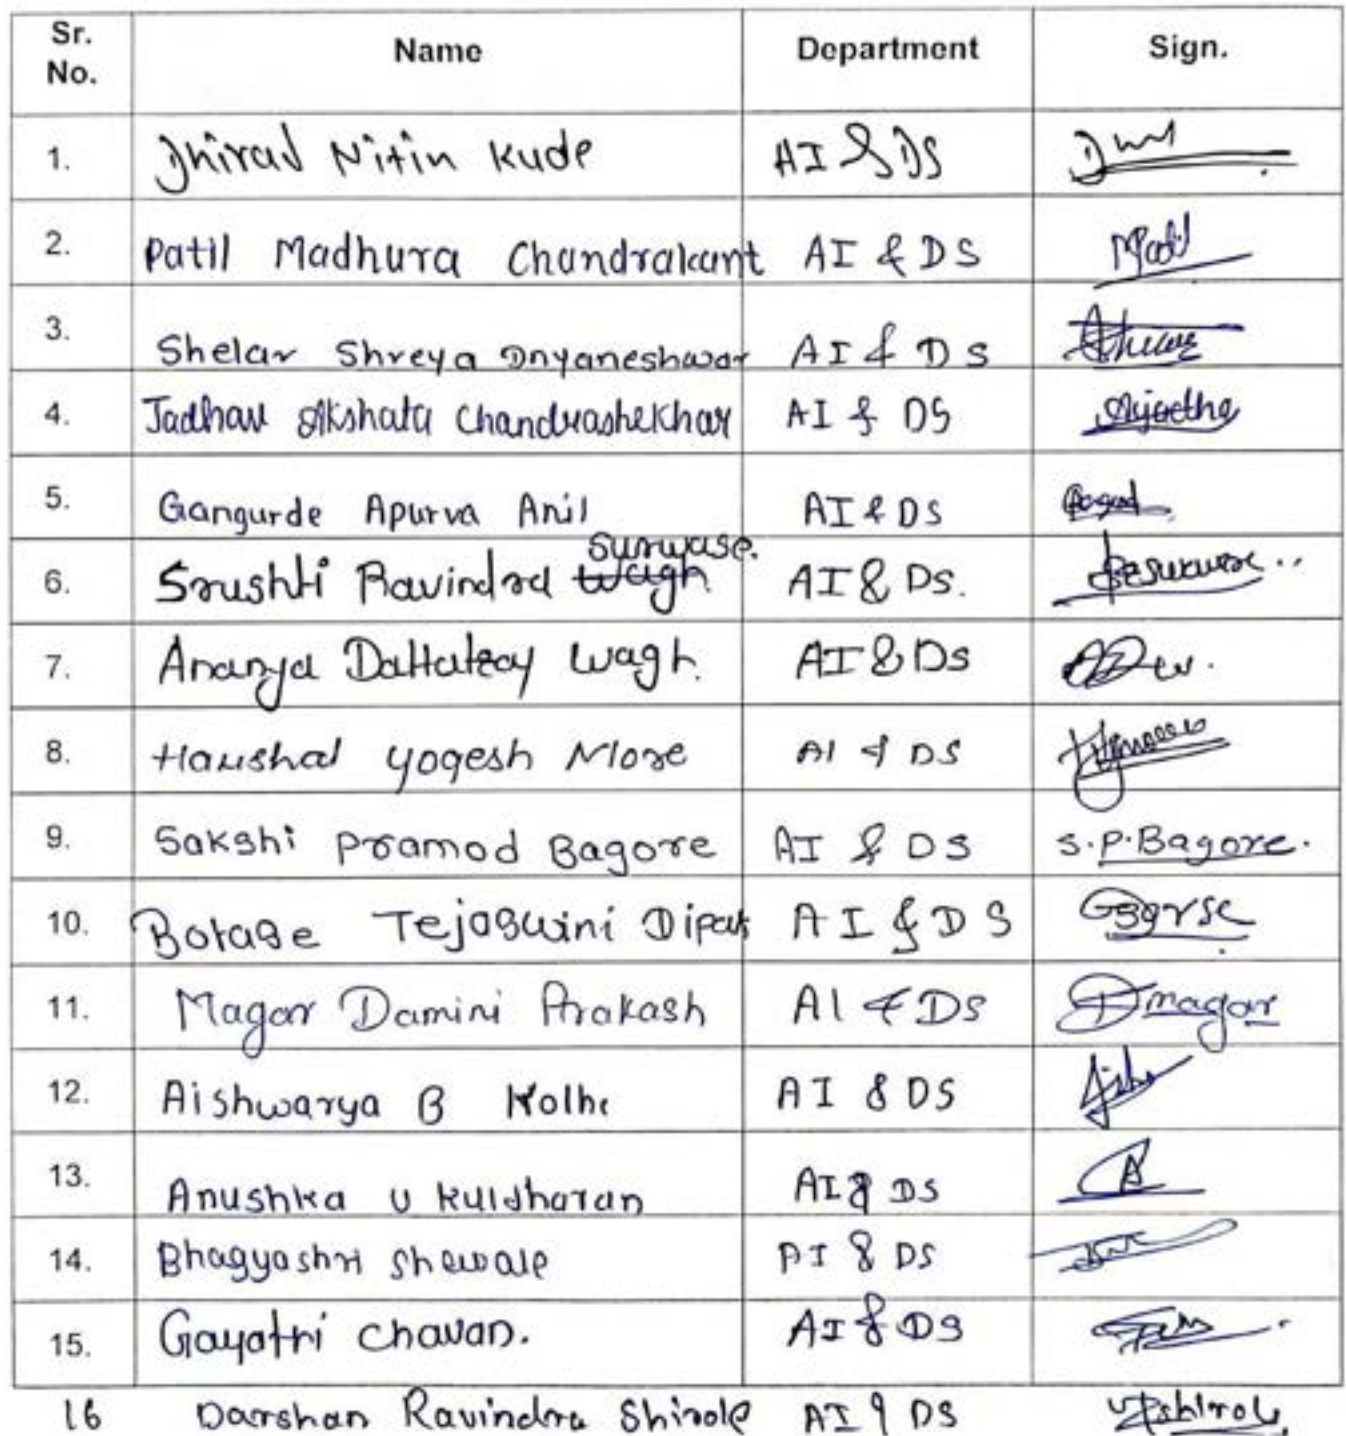 Sr. No. Name Department Sign.
1. Dhiraj Nitin Kude AI & DS
2. Patil Madhura Chandrakant AI & DS
3. Shelar Shreya Dnyaneshwar AI & DS
4. Jadhav Akshata Chandrashekhar AI & DS
5. Gangurde Apurva Anil AI & DS
6. Srushti Ravindra Wagh Surwase. AI & DS.
7. Ananya Dattatray Wagh. AI & DS
8. Harshal Yogesh More AI & DS
9. Sakshi Pramod Bagore AI & DS S.P.Bagore.
10. Borase Tejaswini Dipak AI & DS
11. Magar Damini Prakash AI & DS Dmagar
12. Aishwarya B Kolhe AI & DS
13. Anushka U Kuldharan AI & DS A
14. Bhagyashri Shewale AI & DS
15. Gayatri Chavan. AI & DS
16 Darshan Ravindra Shirole AI & DS